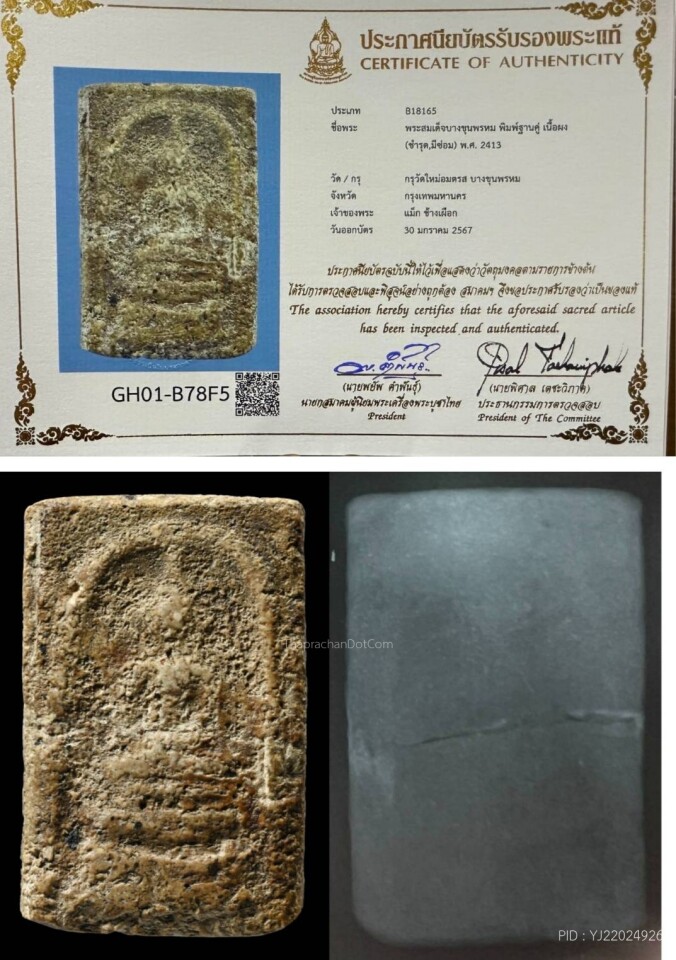 ประกาศนียบัตรรับรองพระแท้
CERTIFICATE OF AUTHENTICITY
ประเภท B18165
ชื่อพระ พระสมเด็จบางขุนพรหม พิมพ์ฐานคู่ เนื้อผง
(ชำรุด,มีซ่อม) พ.ศ. 2413
วัด / กรุ กรุวัดใหม่อมตรส บางขุนพรหม
จังหวัด กรุงเทพมหานคร
เจ้าของพระ แม็ก ช้างเผือก
วันออกบัตร 30 มกราคม 2567
ประกาศนียบัตรฉบับนี้ให้ไว้เพื่อแสดงว่าวัตถุมงคลตามรายการข้างต้น
ได้รับการตรวจสอบและพิสูจน์อย่างถูกต้อง สมาคมฯ จึงขอประกาศรับรองว่าเป็นของแท้
The association hereby certifies that the aforesaid sacred article
has been inspected and authenticated.
GH01-B78F5
(นายพยัพ คำพันธุ์)
นายกสมาคมผู้นิยมพระเครื่องพระบูชาไทย
President
(นายพิศาล เตชะวิภาค)
ประธานกรรมการตรวจสอบ
President of The Committee
ThaprachanDotCom
PID : YJ22024926